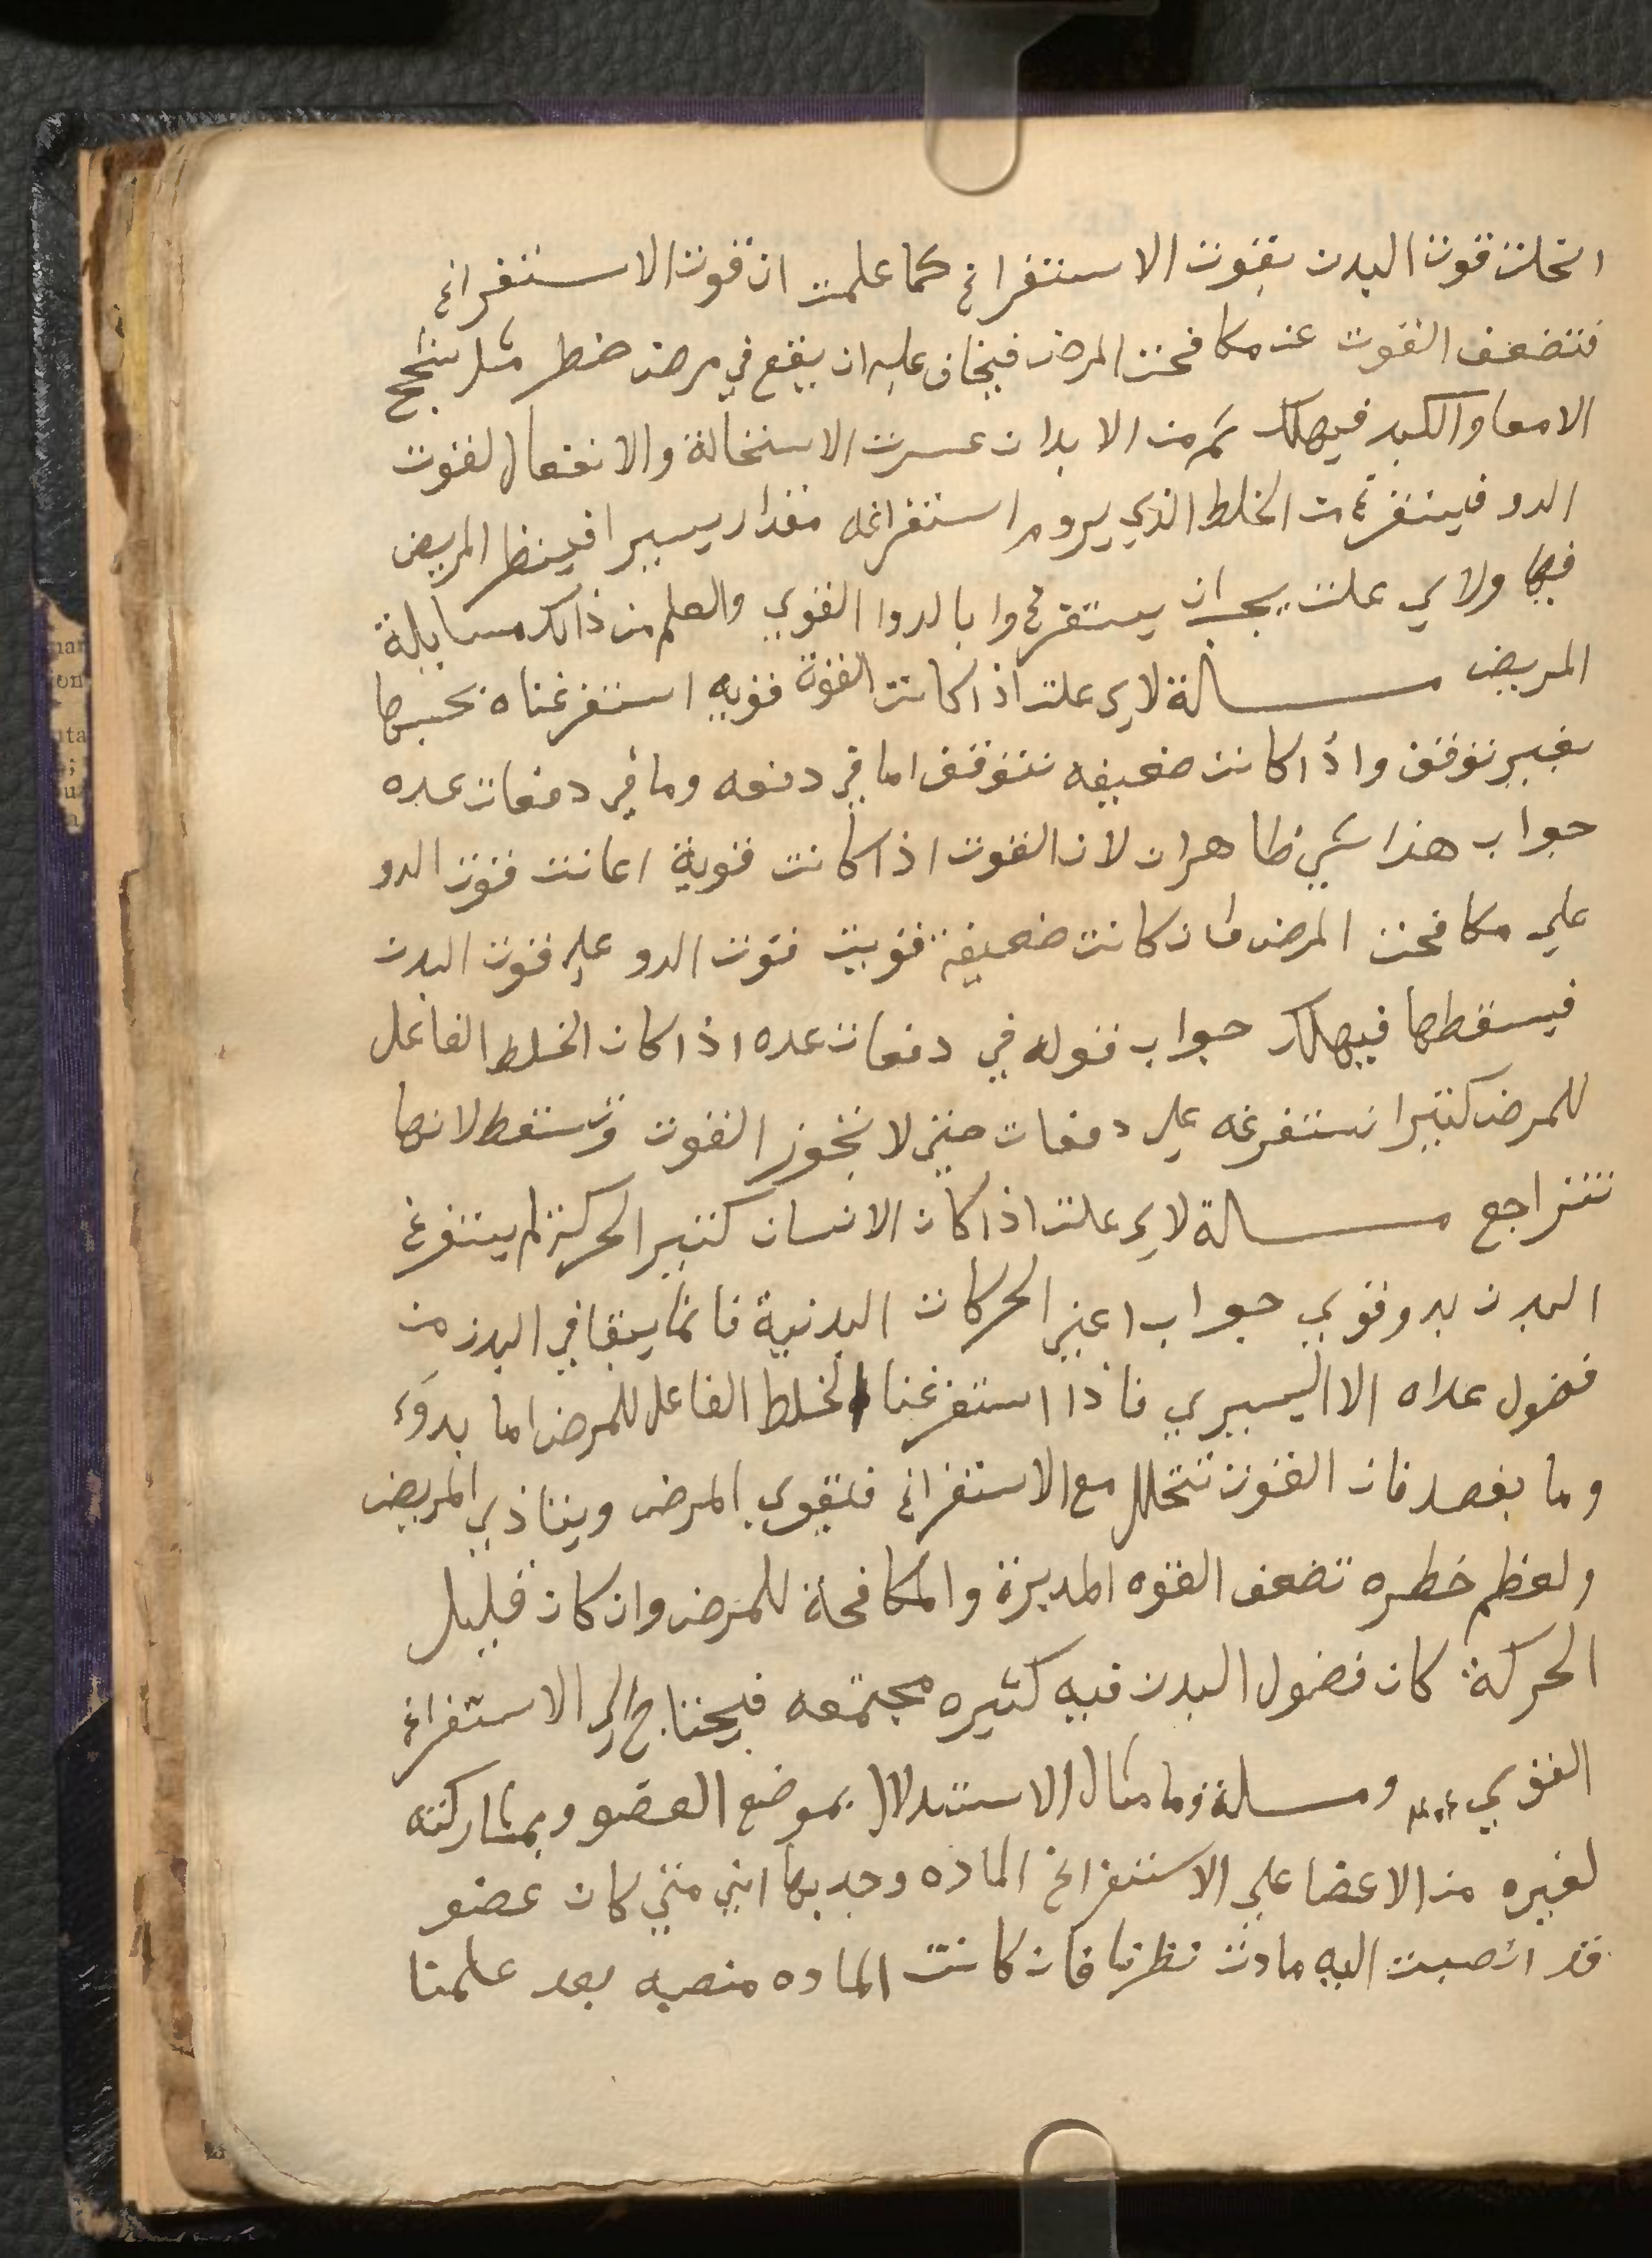 انحلت قوت البدن بقوت الاستفراغ كما علمت ان قوت الاستفراغ
فتضعف القوت عن مكافحت المرض فيخاف عليه ان يقع في مرض خطر مثل سحج
الامعا والكبد فيهلك ثم من الابدان عسرت الاستحالة والانفعال لقوت
الدو فيستفرغ من الخلط الذي يروم استفراغه مقدار يسيرا فينظر المريض
فيها ولاي علت يجب ان يستفرغوا بالدوا القوي والعلم من ذالك مسايلة
المريض مسالة لاي علت اذا كانت القوة قويه استفرغناه بحسبها
بغير توقف واذا كانت ضعيفه نتوقف اما في دفعه وما في دفعات عده
جواب هذا شي ظاهران لان القوت اذا كانت قوية اعانت قوت الدو
علي مكافحت المرض فان كانت ضعيفة قويت قوت الدو علي قوت البدن
فيسقطها فيهلك جواب قوله في دفعات عده اذا كان الخلط الفاعل
للمرض كثيرا نستفرغه علي دفعات حتي لا تخوز القوت وتسقط لانها
تتراجع مسالة لاي علت اذا كان الانسان كثير الحركة لم يستفرغ
البدن بدو قوي جواب اعني الحركات البدنية فانما يبقا في البدن من
فضول عداه الا اليسيري فاذا استفرغنا الخلط الفاعل للمرض اما بدوء
وما بفصد فان القوت تتحلل مع الاستفراغ فيقوي المرض ويتاذي المريض
ولعظم خطره تضعف القوه المدبرة والمكافحة للمرض وان كان قليل
الحركة كان فضول البدن فيه كثيره مجتمعه فيحتاج الي الاستفراغ
القوي ومسلة وما مثال الاستدلال بموضع العضو وبمشاركته
لغيره من الاعضا علي الاستفراغ الماده وجدبها انني متي كان عضو
قد انصبت اليه مادت نظرنا فان كانت الماده منصبه بعد علمنا